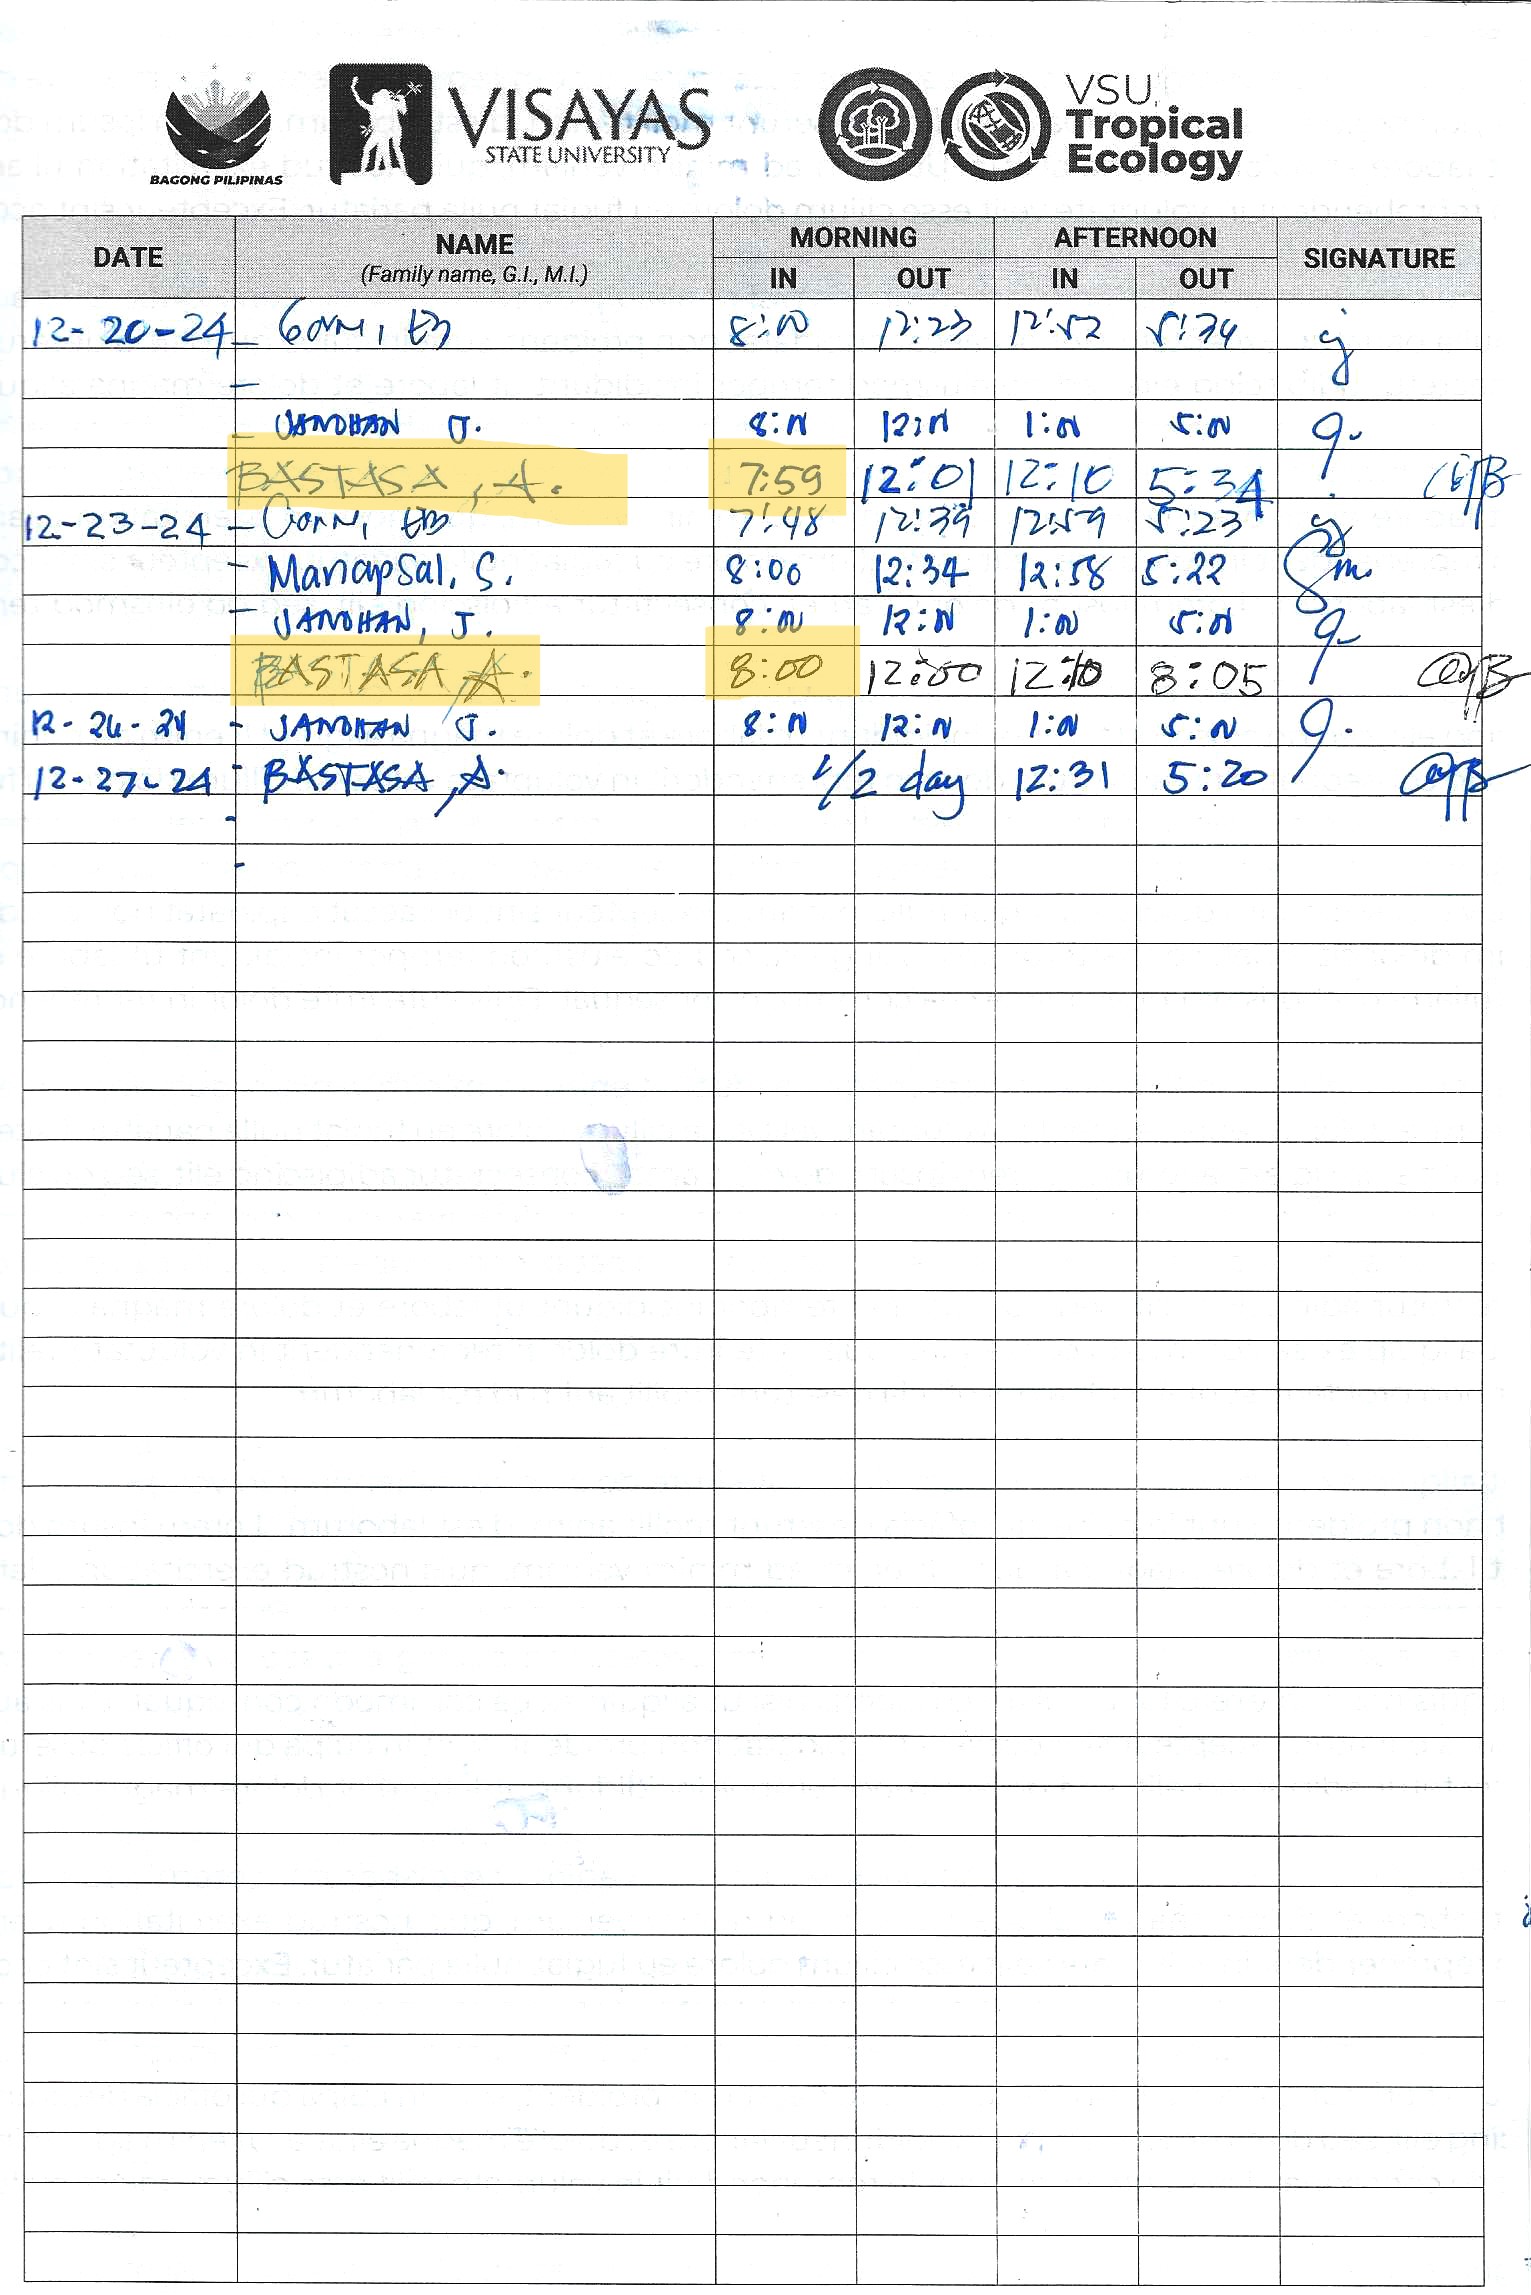 BAGONG PILIPINAS
VISAYAS
STATE UNIVERSITY
VSU
Tropical
Ecology
DATE NAME MORNING AFTERNOON SIGNATURE
(Family name, G.I., M.I.) IN OUT IN OUT
12-20-24 - 8:00 12:23 12:52 5:34
-
- JANDHAN J. 8:00 12:00 1:00 5:00
BASTASA, A. 7:59 12:01 12:10 5:34
12-23-24 - 7:48 12:39 12:59 5:23
- Manapsal, S. 8:00 12:34 12:58 5:22
- JANDHAN, J. 8:00 12:00 1:00 5:00
BASTASA, A. 8:00 12:00 12:10 8:05
12-26-24 - JANDHAN J. 8:00 12:00 1:00 5:00
12-27-24 - BASTASA, A. 1/2 day 12:31 5:20
-
-